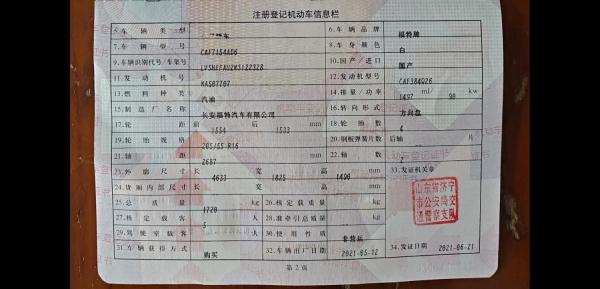 注册登记机动车信息栏
5.车辆类型 轿车 6.车辆品牌 福特牌
7.车辆型号 CAF7154AD6 8.车身颜色 白
9.车辆识别代号/车架号 10.国产/进口 国产
11.发动机号 12.发动机型号 CAF384Q26
13.燃料种类 汽油 14.排量/功率 1497 ml/ 90 kw
15.制造厂名称 长安福特汽车有限公司 16.转向形式 方向盘
17.轮距 前 1554 后 1533 mm 18.轮胎数 4
19.轮胎规格 205/55 R16 20.钢板弹簧片数 后轴 片
21.轴距 2687 mm 22.轴数 2
23.外廓尺寸 长 4633 宽 1825 高 1496 mm 33.发证机关章
24.货厢内部尺寸 长 宽 高 mm
山东省济宁
市公安局交
通警察支队
25.总质量 1720 kg 26.核定载质量 kg
27.核定载客 5 人 28.准牵引总质量 kg
29.驾驶室载客 人 30.使用性质 非营运
31.车辆获得方式 购买 32.车辆出厂日期 2021-05-12 34.发证日期 2021-06-21
第2页